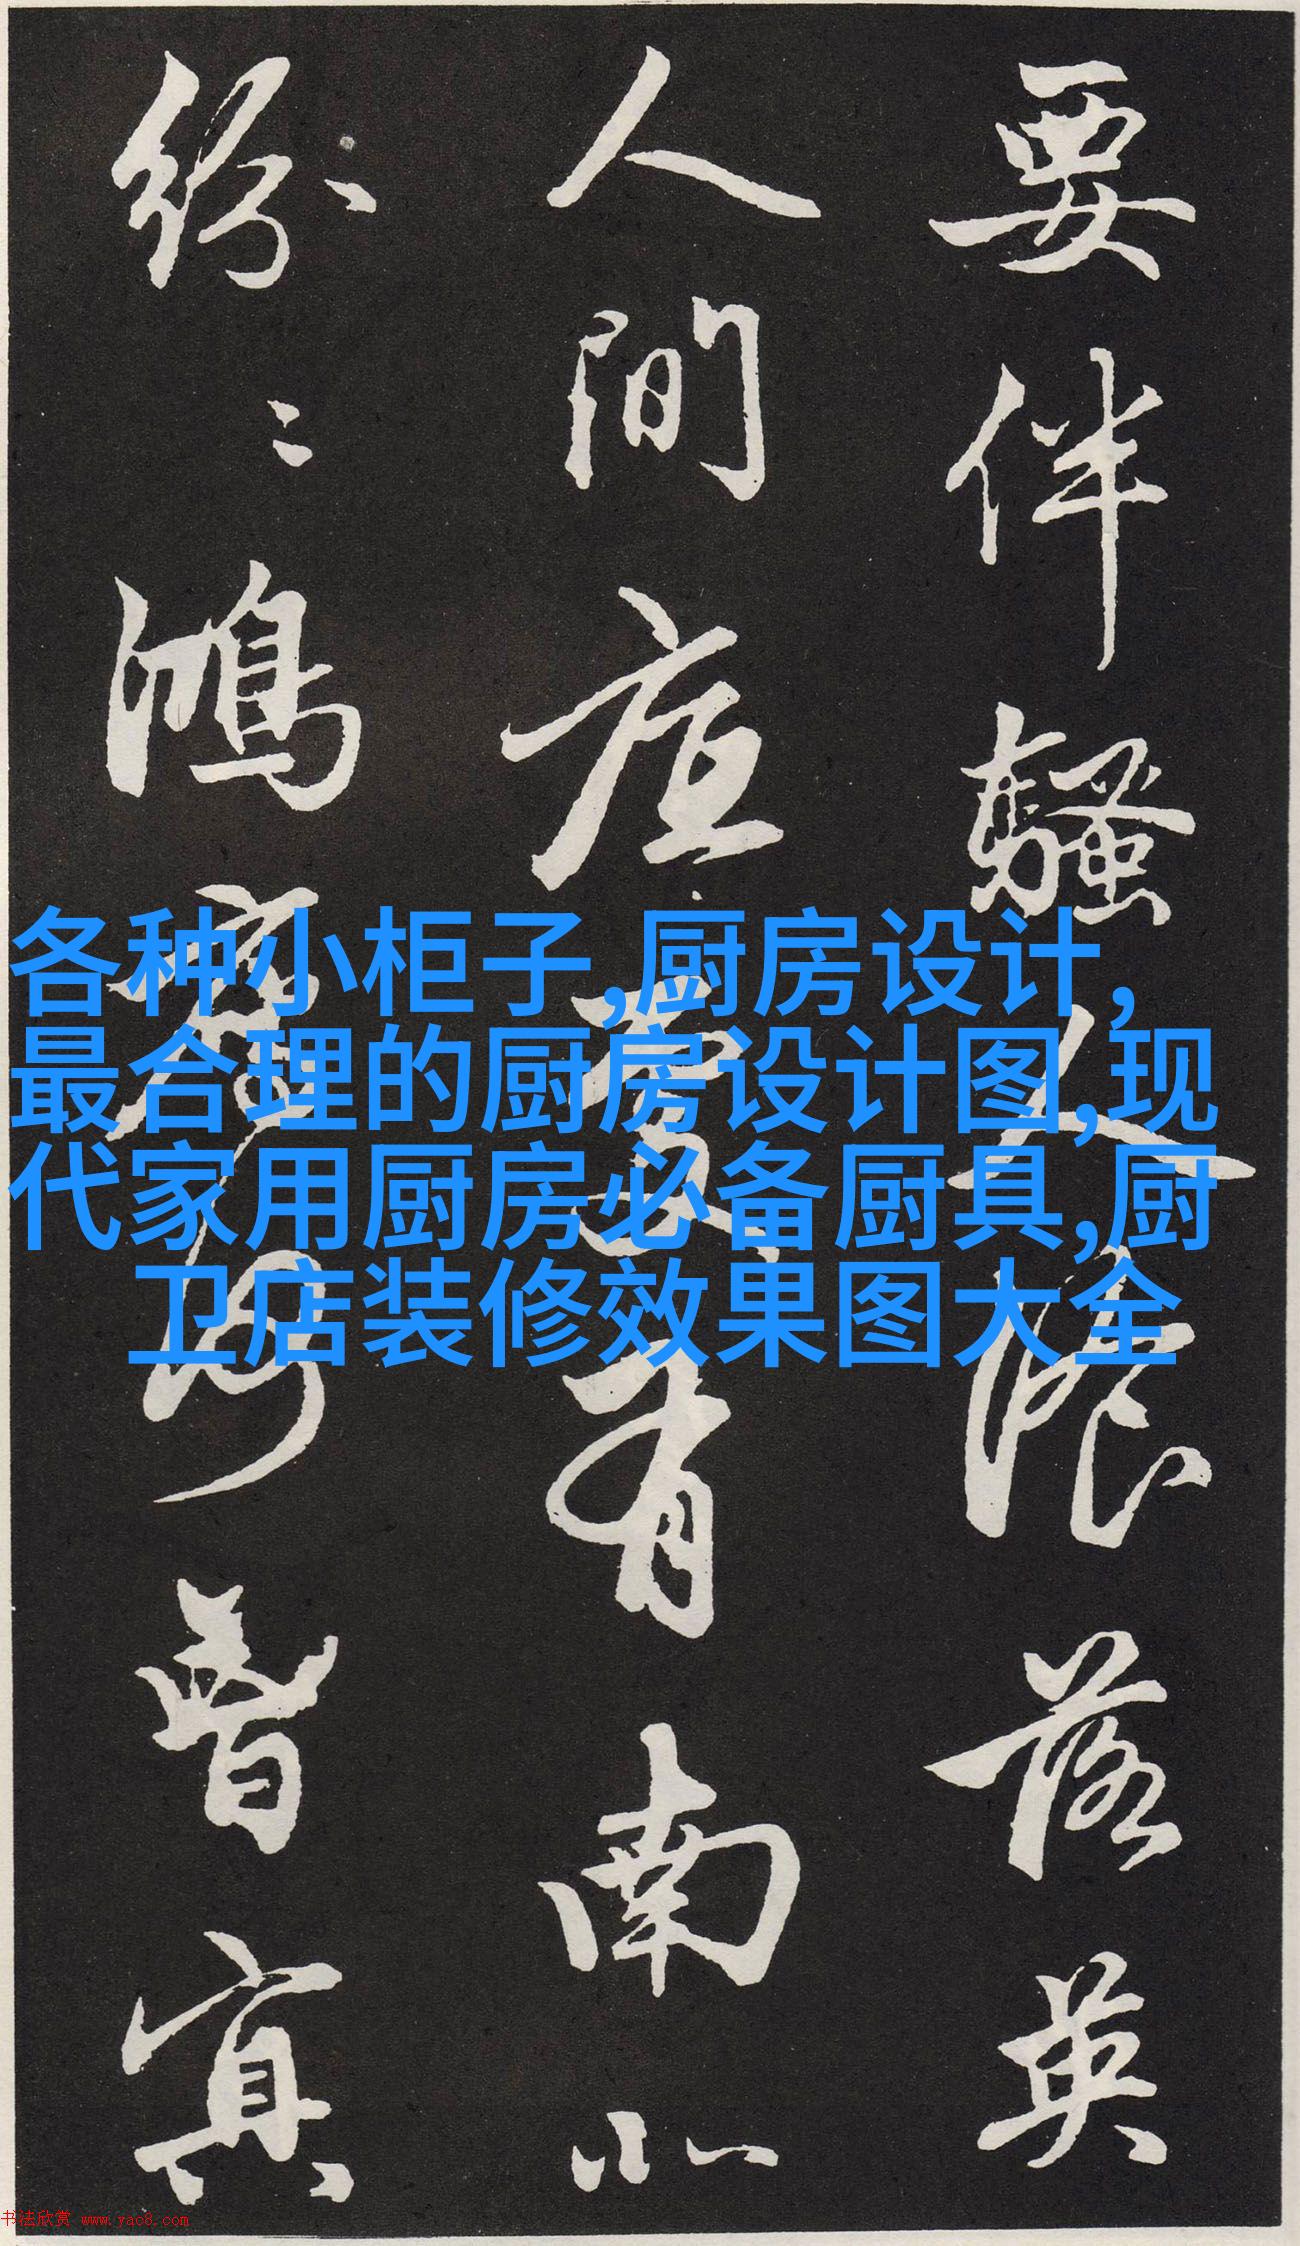 要伴騷人湌落英
人間底處有南北
紛〻鴻雁何曾冥
各种小柜子,厨房设计,
最合理的厨房设计图,现
代家用厨房必备厨具,厨
卫店装修效果图大全
书法欣赏 www.yac8.com